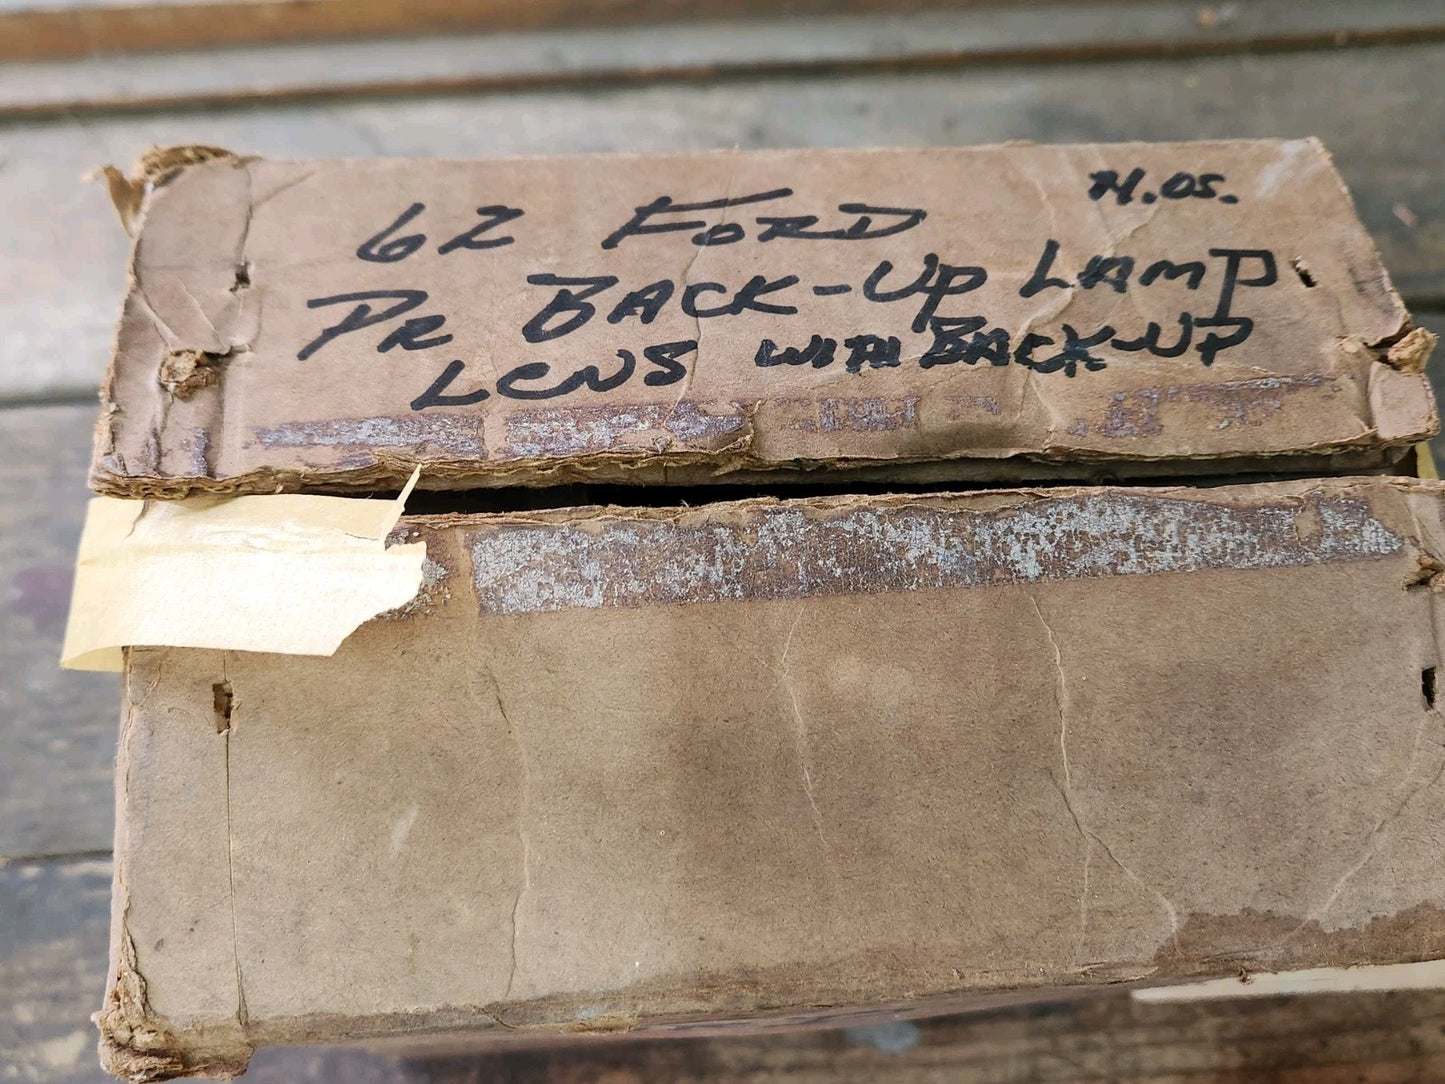 N.OS.
62 FORD
PR BACK-UP LAMP
LENS WITH BACK-UP